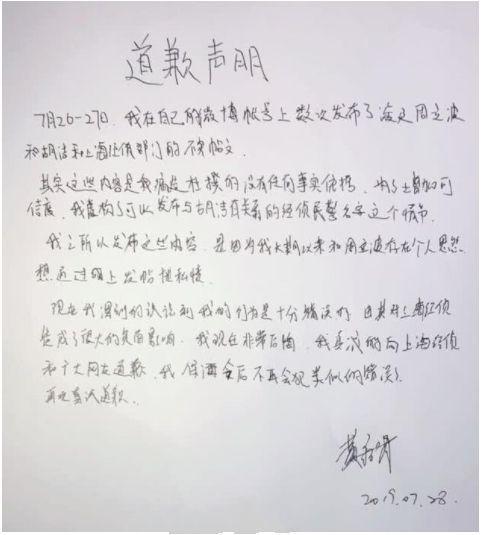 道歉声明
7月26-27日，我在自己的微博帐号上数次发布了涉及周立波
和胡洁和上海经侦部门的不实帖文
其实这些内容是我编造杜撰的没有任何事实依据，为了增加可
信度，我虚构了可以发布与胡洁有关系的经侦民警名字这个情节.
我之所以发布这些内容，是因为我长期以来和周立波存在个人恩怨
想通过网上发帖泄私愤.
现在我深刻的认识到我的行为是十分错误的 因其对上海经侦
造成了很大的负面影响，我现在非常后悔，我真诚的向上海经侦
和广大网友道歉，我保证今后不再会犯类似的错误.
再次真诚道歉.
2019.07.28.